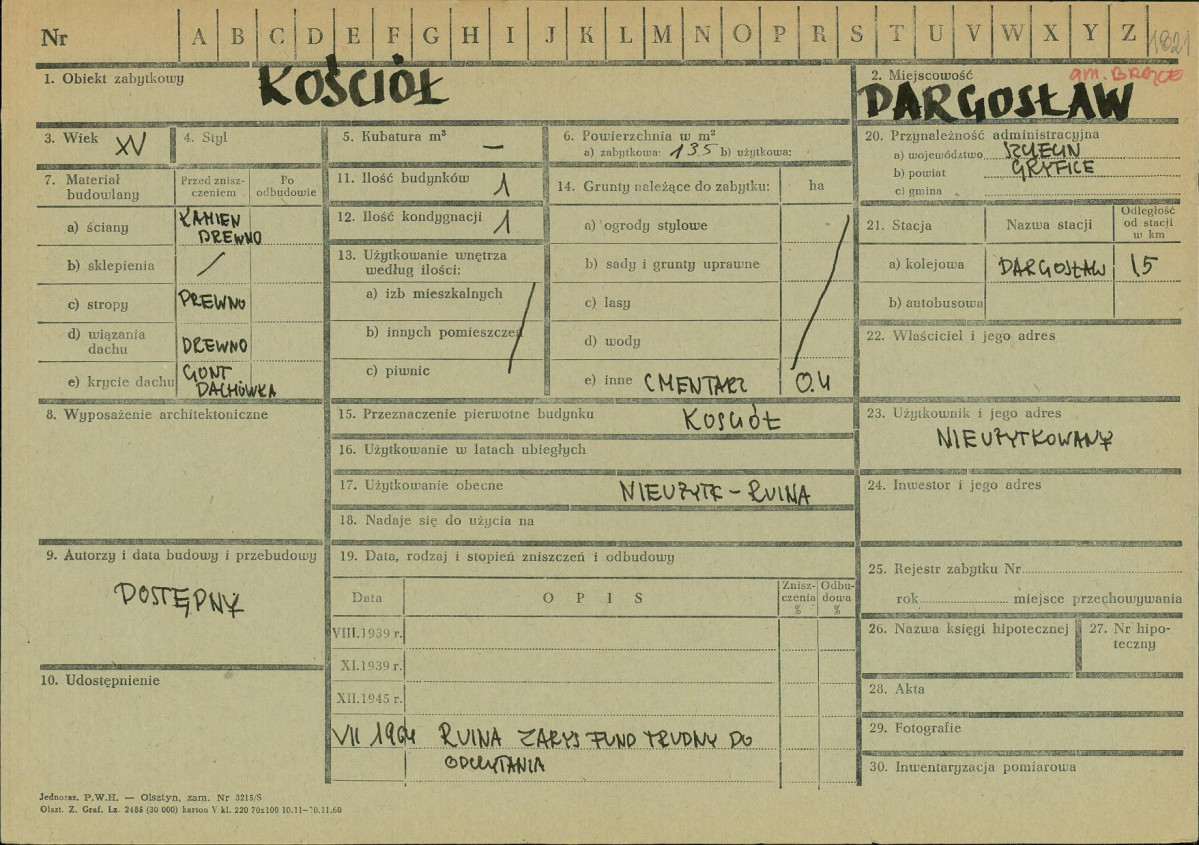 Nr A B C D E F G H I J K L M N O P R S T U V W X Y Z 1821
1. Obiekt zabytkowy KOŚCIÓŁ
2. Miejscowość gm. BROJCE
DARGOSŁAW
3. Wiek XV
4. Styl
5. Kubatura m³ —
6. Powierzchnia w m²
a) zabytkowa: 135 b) użytkowa:
7. Materiał budowlany
Przed zniszczeniem
Po odbudowie
a) ściany KAMIEN DREWNO
b) sklepienia /
c) stropy DREWNO
d) wiązania dachu DREWNO
e) krycie dachu GONT DACHÓWKA
8. Wyposażenie architektoniczne
9. Autorzy i data budowy i przebudowy
DOSTĘPNY
10. Udostępnienie
11. Ilość budynków 1
12. Ilość kondygnacji 1
13. Użytkowanie wnętrza
według ilości:
a) izb mieszkalnych
b) innych pomieszczeń
c) piwnic
14. Grunty należące do zabytku: ha
a) ogrody stylowe
b) sady i grunty uprawne
c) lasy
d) wody
e) inne CMENTARZ 0.4
15. Przeznaczenie pierwotne budynku KOSCIÓŁ
16. Użytkowanie w latach ubiegłych
17. Użytkowanie obecne NIEUŻYTK – RUINA
18. Nadaje się do użycia na
19. Data, rodzaj i stopień zniszczeń i odbudowy
Data OPIS Zniszczenia % Odbudowa %
VIII.1939 r.
XI.1939 r.
XII.1945 r.
VII 1964 RUINA ZARYS FUND TRUDNY DO
ODCZYTANIA
20. Przynależność administracyjna
a) województwo SZCZECIN
b) powiat GRYFICE
c) gmina
21. Stacja Nazwa stacji Odległość od stacji w km
a) kolejowa DARGOSŁAW 15
b) autobusowa
22. Właściciel i jego adres
23. Użytkownik i jego adres
NIEUŻYTKOWANY
24. Inwestor i jego adres
25. Rejestr zabytku Nr
rok miejsce przechowywania
26. Nazwa księgi hipotecznej
27. Nr hipoteczny
28. Akta
29. Fotografie
30. Inwentaryzacja pomiarowa
Jednoraz. P.W.H. — Olsztyn, zam. Nr 3218/S
Olszt. Z. Graf. Lz. 2485 (30 000) karton V kl. 220 70x100 10.11–10.11.60